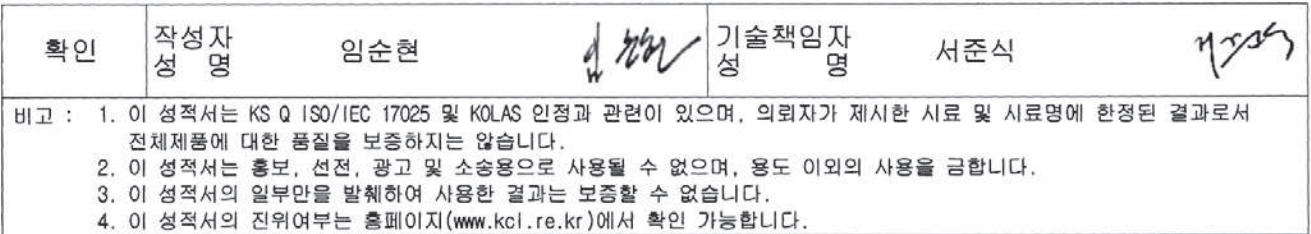 확인 작성자 성 명 임순현 기술책임자 성 명 서준식
비고 : 1. 이 성적서는 KS Q ISO/IEC 17025 및 KOLAS 인정과 관련이 있으며, 의뢰자가 제시한 시료 및 시료명에 한정된 결과로서
전체제품에 대한 품질을 보증하지는 않습니다.
2. 이 성적서는 홍보, 선전, 광고 및 소송용으로 사용될 수 없으며, 용도 이외의 사용을 금합니다.
3. 이 성적서의 일부만을 발췌하여 사용한 결과는 보증할 수 없습니다.
4. 이 성적서의 진위여부는 홈페이지(www.kcl.re.kr)에서 확인 가능합니다.